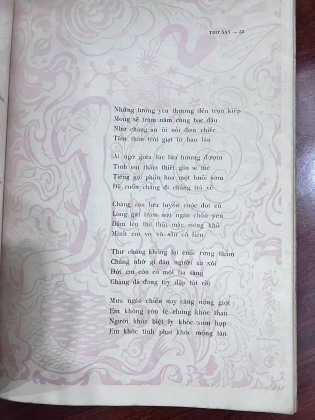 THƠ SAY — 53
Những tưởng yêu thương đến trọn kiếp
Mong sẽ trăm năm cùng bạc đầu
Như chàng ân ái nỗi đơn chiếc
Tấm thân trôi giạt từ bao lâu
Ai ngờ giữa lúc lửa hương đượm
Tình em thắm thiết gìn si mê
Tiếng gọi phồn hoa một buổi sớm
Để cuốn chàng đi chẳng trả về
Chàng còn lưu luyến cuộc đời cũ
Long gót trăm nơi ngàn chốn yêu
Dấm lên thề thối mặc mòng khổ
Mình em vò võ sầu cô liêu
Thư chàng không lại cuối rừng thẳm
Chàng nhớ gì đâu người xa xôi
Đời em còn có một tia sáng
Chàng đã đang tay dập tắt rồi
Mưa ngâu chiều nay càng nóng giọt
Em không còn lệ chung khóc than
Người khóc biệt ly khóc xum họp
Em khóc tình phai khóc mộng tàn